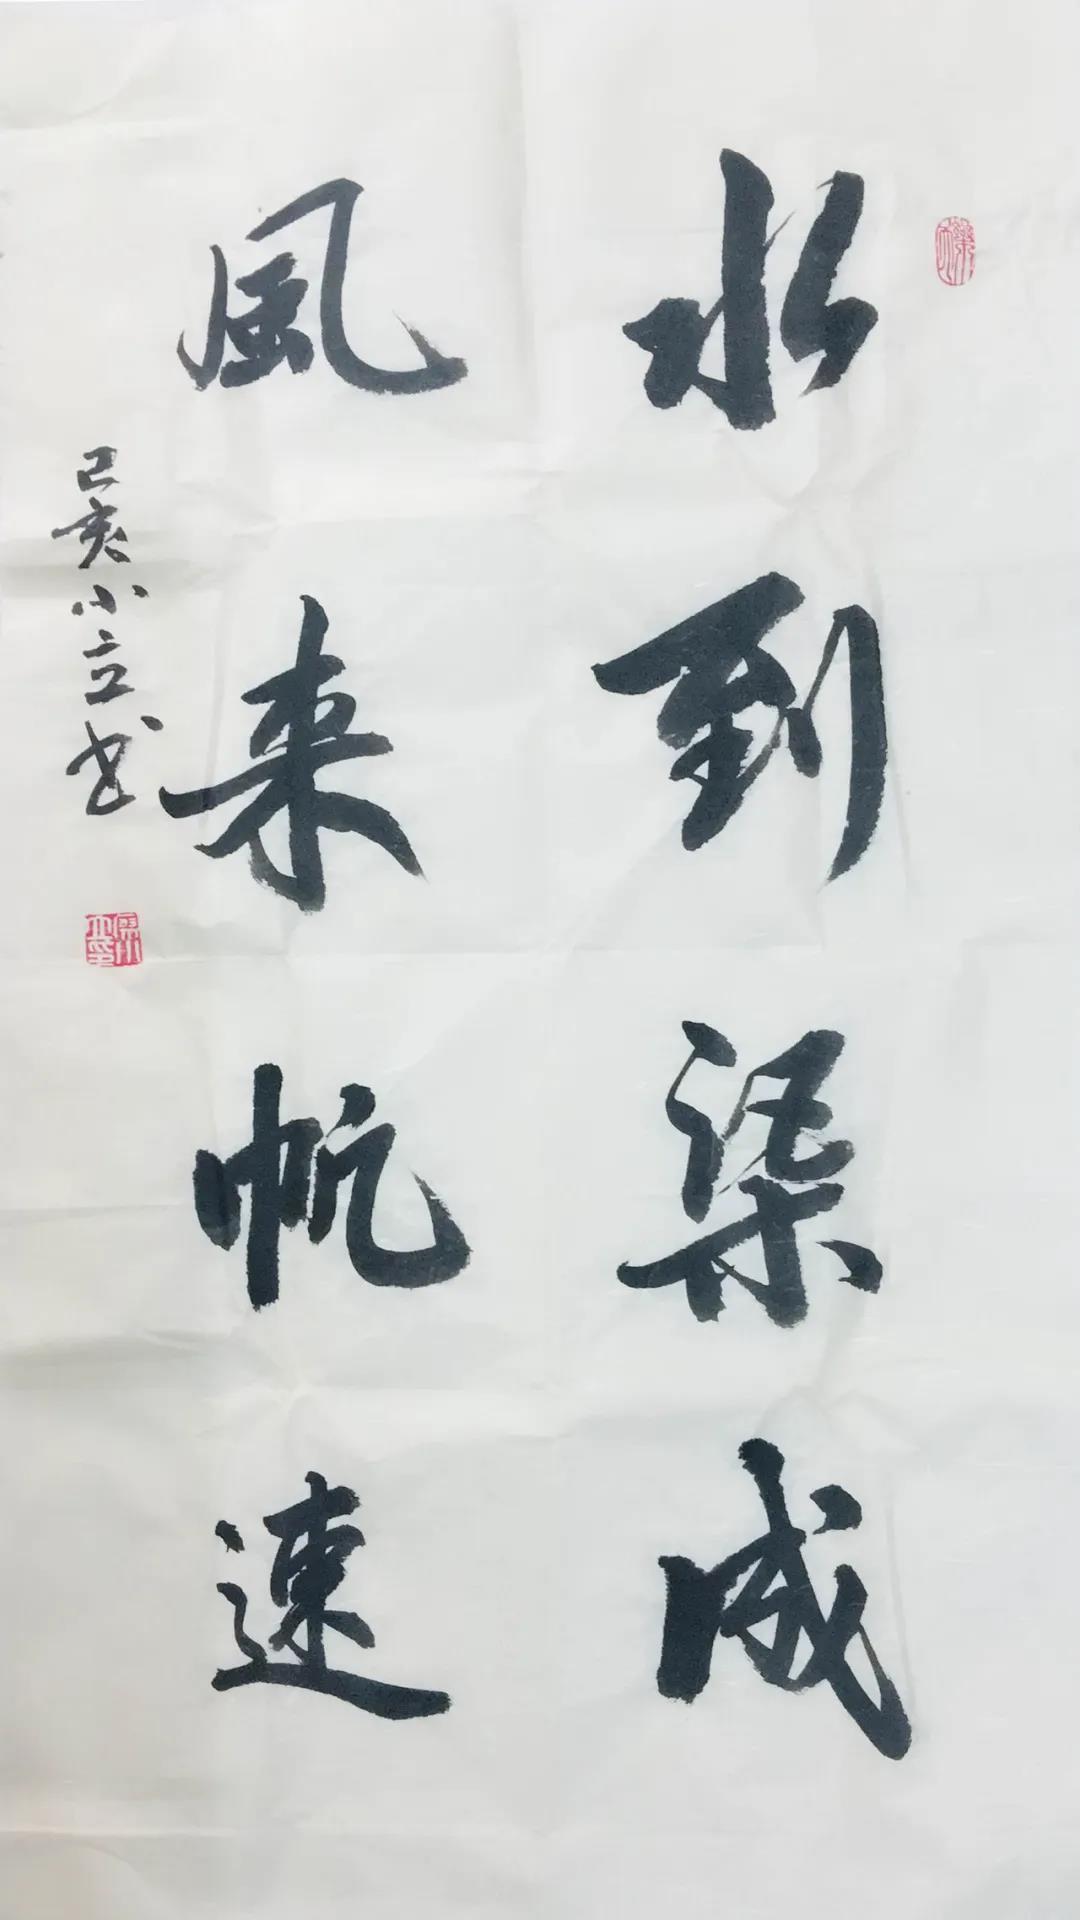 水到渠成
風来帆速
己亥小立书